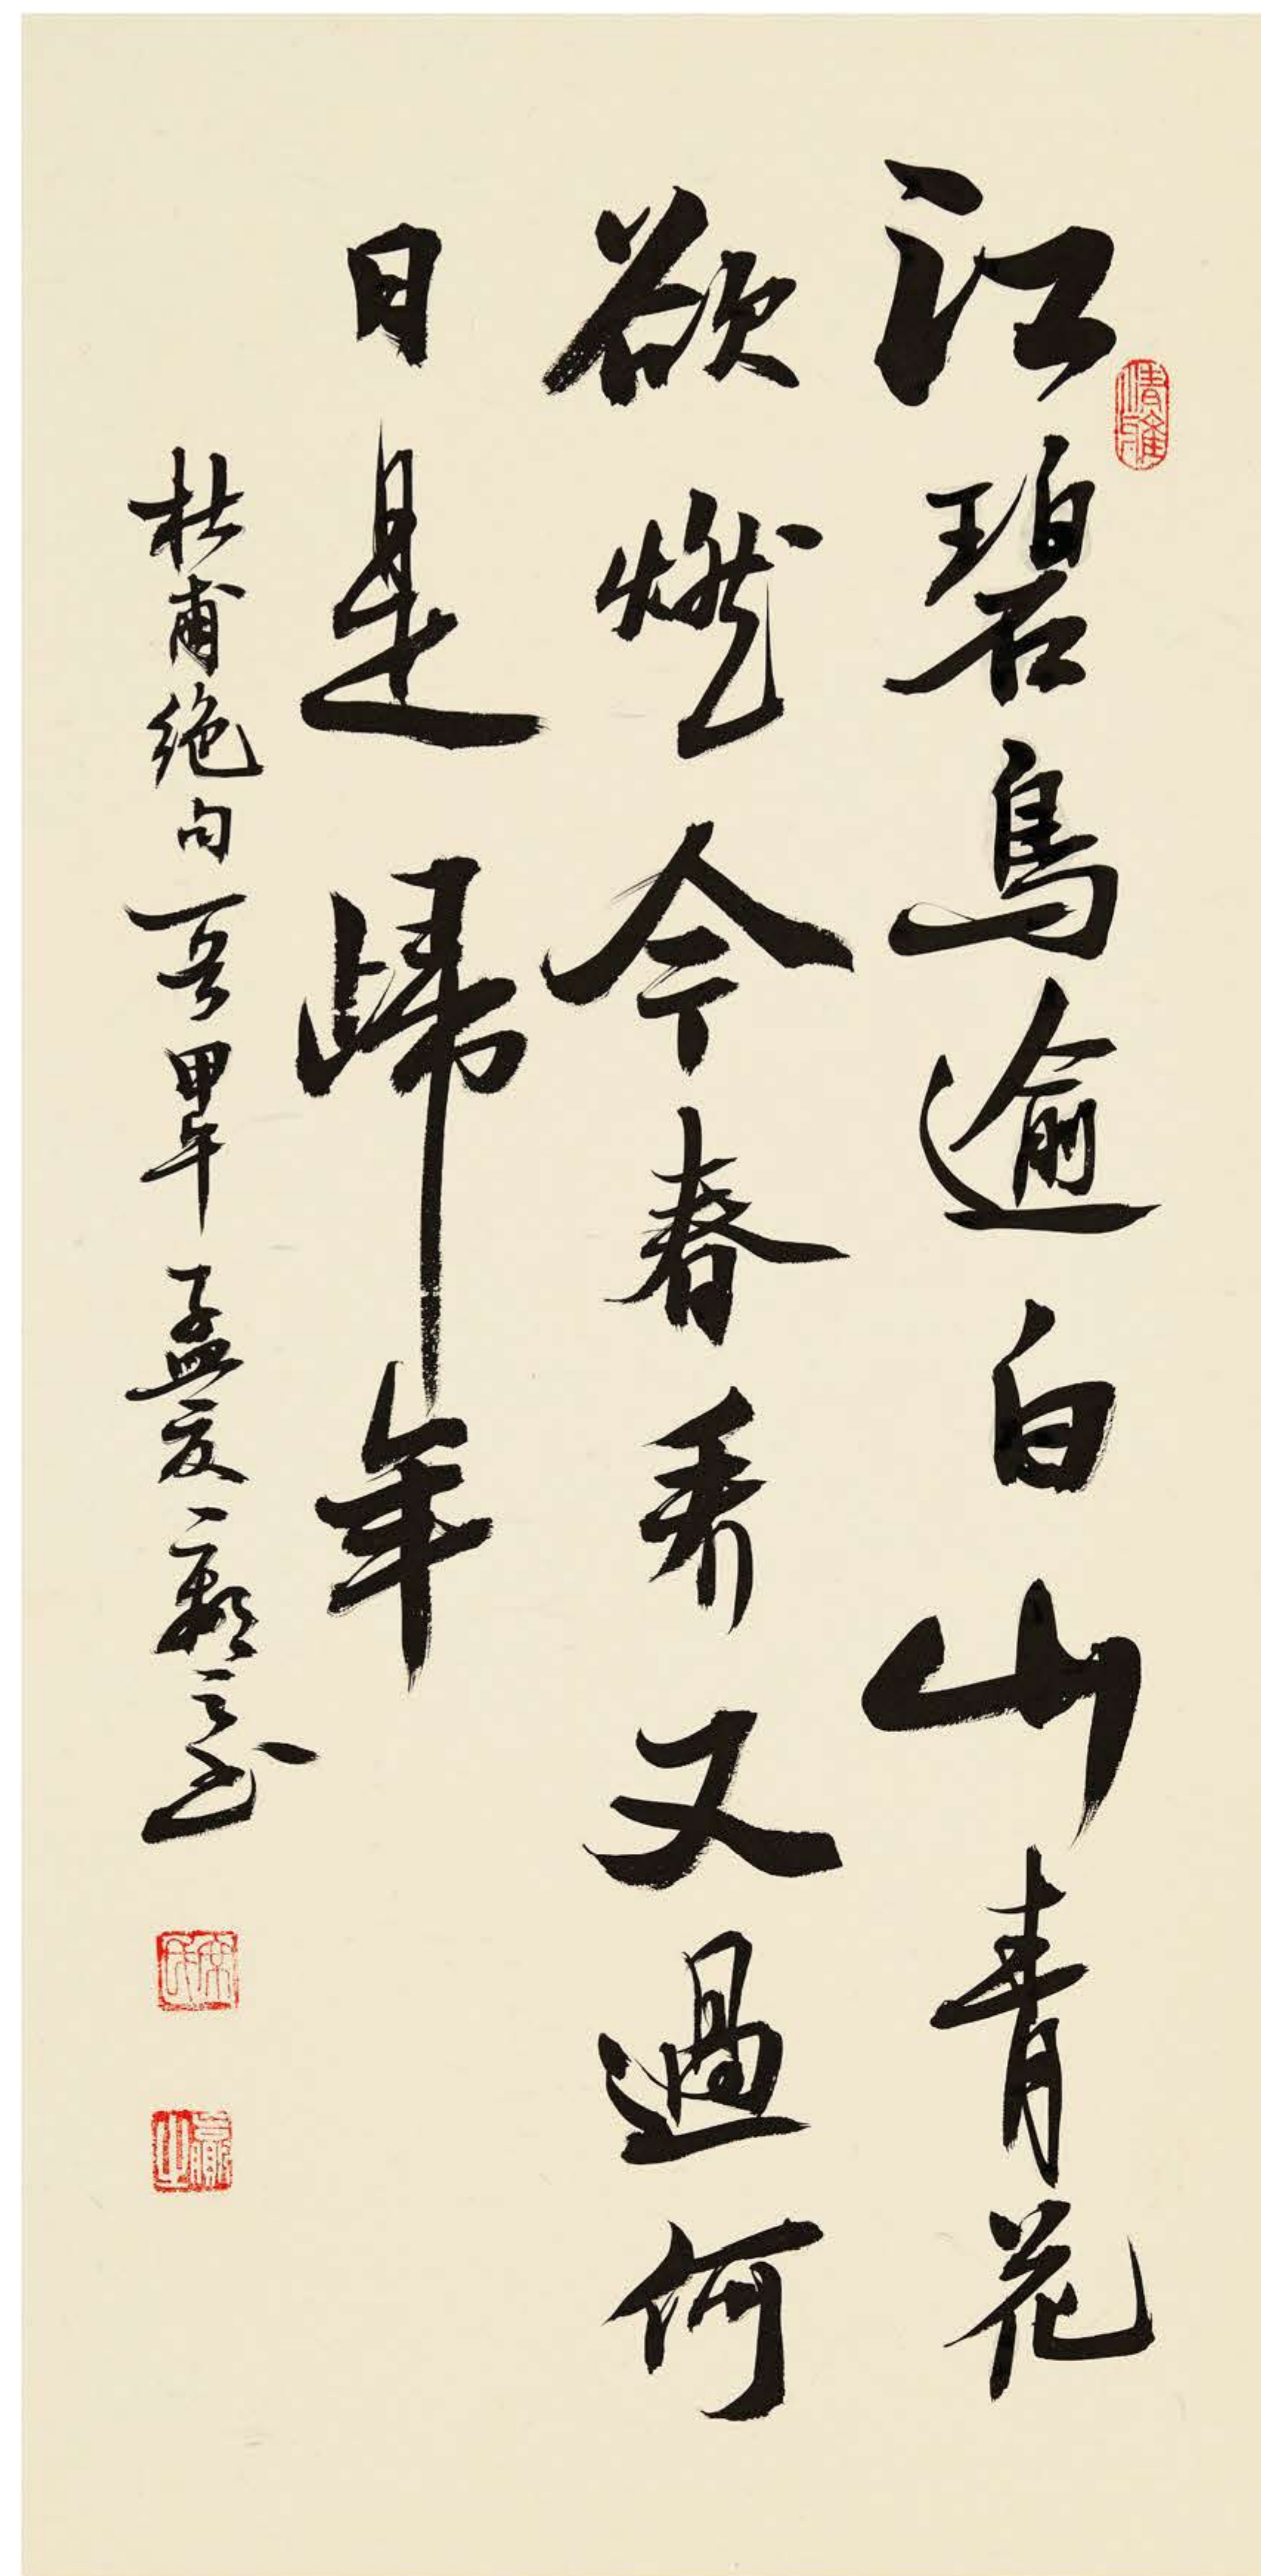 江碧鳥逾白山青花
欲燃今春看又過何
日是歸年
杜甫絕句一首甲午孟夏之書
清雅